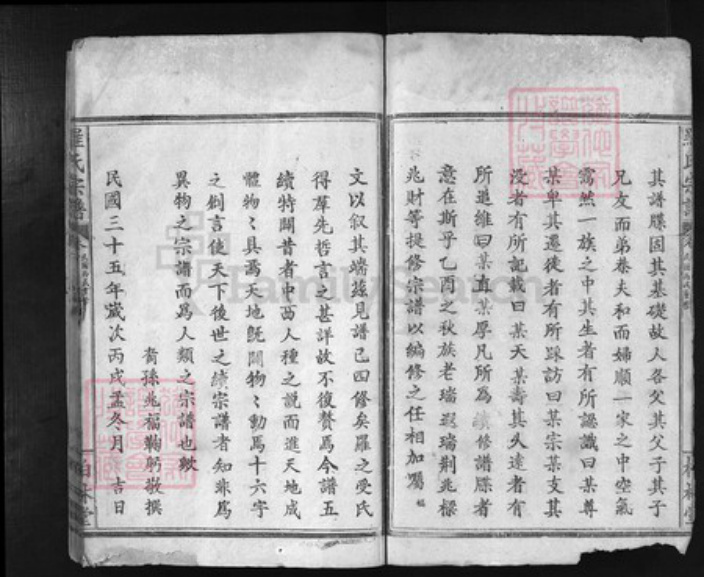 其譜牒固其基礎故人各父其父子其子
兄友而弟恭夫和而婦順一家之中空氣
靄然一族之中其生者有所認識曰某尊
某卑其遷徙者有所踩訪曰某宗某支其
沒者有所記載曰某天某壽其久遠者有
所追維曰某直某厚凡所為續修譜牒者
意在斯乎乙酉之秋族老瑞遐瑞荆兆椂
兆財等提修宗譜以編修之任相加屬
文以叙其端緣見譜已四修矣羅之受氏
得羣先哲言之甚詳故不復贅焉今譜五
續特闢昔者中西人種之說而進天地成
體物〻具焉天地既闢物〻動焉十六字
之創言使天下後世之續宗譜者知非為
異物之宗譜而爲人類之宗譜也歟
裔孫兆福鞠躬敬撰
民國三十五年歲次丙戌孟冬月 吉日
羅氏宗譜
FamilySearch